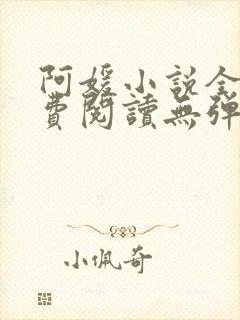 阿媛小説全
費閱讀無彈
小佩奇